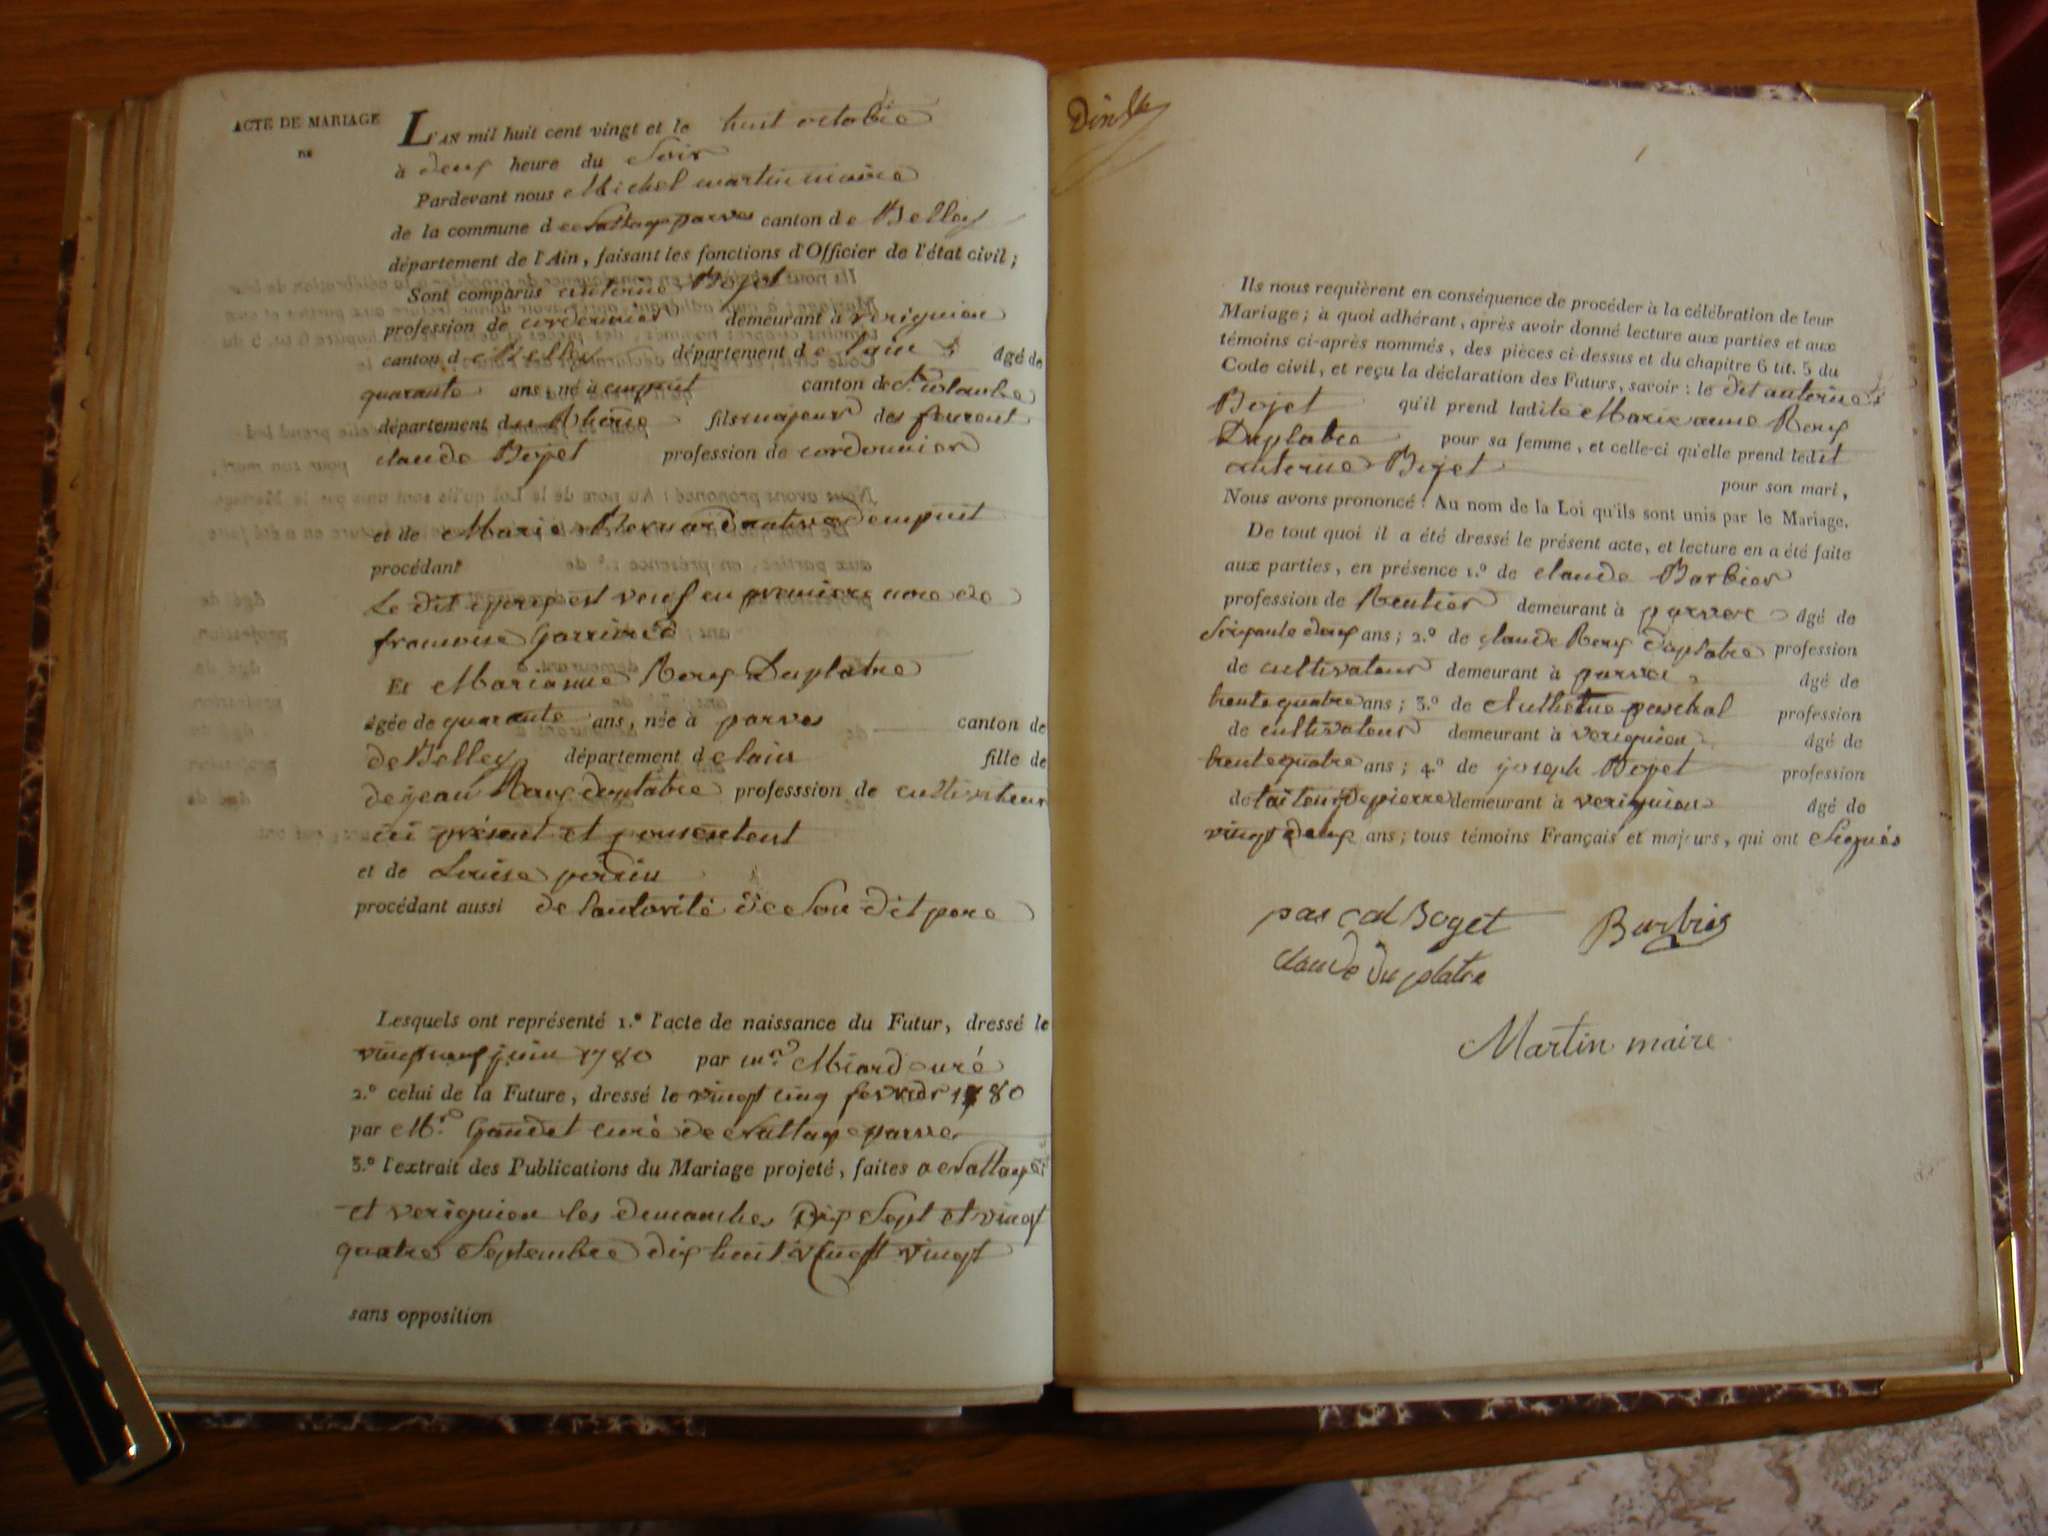 ACTE DE MARIAGE
DE
L'AN mil huit cent vingt et le huit octobre
à deux heure du Soir
Pardevant nous Michel martin maire
de la commune de nattage parves canton de Belley
département de l'Ain, faisant les fonctions d'Officier de l'état civil;
Sont comparus antoine Bojet
profession de cordonnier demeurant à virignien
canton de Belley département de lain âgé de
quarante ans, né à ampuit canton de Ste Colombe
département du Rhône fils majeur des feurent
claude Bojet profession de cordonnier
et de Marie Bernard native dempuit
procédant
Le dit epoux est veuf en première noce de
francoise
Et Marianne Roux Duplatre
âgée de quarante ans, née à parves canton de
de Belley département de lain fille de
de jean Roux duplatre professsion de cultivateur
ici présent et consentent
et de Louise perrin
procédant aussi de lautorité de Son dit pere
Lesquels ont représenté 1.º l'acte de naissance du Futur, dressé le
vingt neuf juin 1780 par mr. Miard curé
2.º celui de la Future, dressé le vingt cinq fevrier 1780
par Mr. Gaudet curé de nattage parve
3.º l'extrait des Publications du Mariage projeté, faites a nattage
et virignien les dimanches Dix Sept et vingt
quatre Septembre dix huit vingt vingt
sans opposition
Ils nous requièrent en conséquence de procéder à la célébration de leur
Mariage; à quoi adhérant, après avoir donné lecture aux parties et aux
témoins ci-après nommés, des pièces ci-dessus et du chapitre 6 tit. 5 du
Code civil, et reçu la déclaration des Futurs, savoir: le dit antoine
Bojet qu'il prend ladite Marie anne Roux
Duplatre pour sa femme, et celle-ci qu'elle prend ledit
antoine Bojet pour son mari,
Nous avons prononcé: Au nom de la Loi qu'ils sont unis par le Mariage.
De tout quoi il a été dressé le présent acte, et lecture en a été faite
aux parties, en présence 1.º de claude Barbier
profession de Rentier demeurant à parves âgé de
Soixante deux ans; 2.º de claude Roux duplatre profession
de cultivateur demeurant à parves âgé de
trente quatre ans; 3.º de Anthelme paschal profession
de cultivateur demeurant à virignien âgé de
trente quatre ans; 4.º de joseph Bojet profession
de tailleur de pierre demeurant à virignien âgé de
vingt deux ans; tous témoins Français et majeurs, qui ont Signés
pascal Boget Barbier
claude duplatre
Martin maire